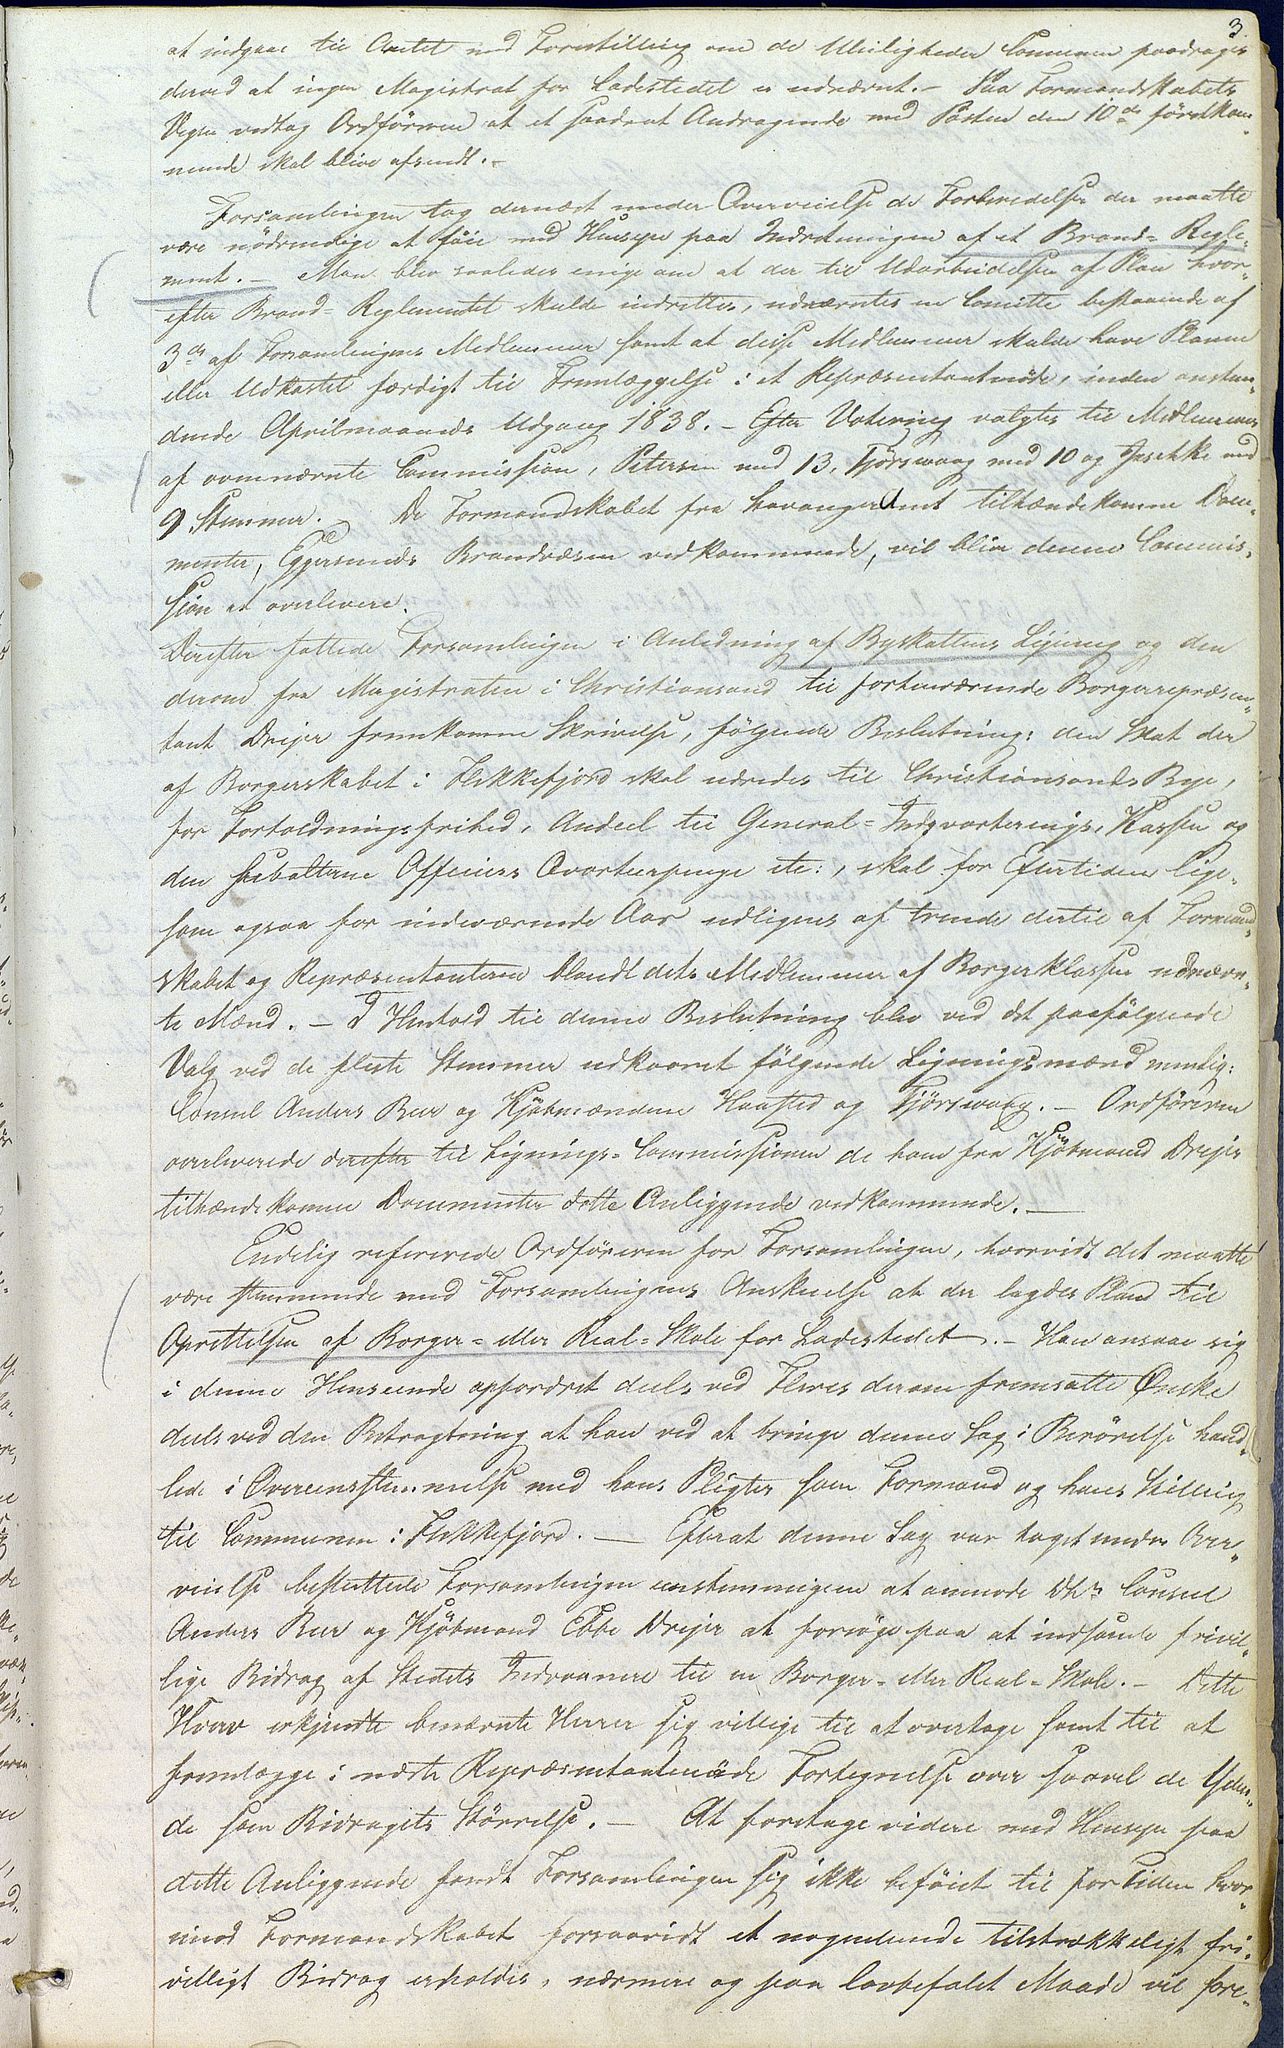 3.
at indgaae til Amtet med Forestilling om de Uleiligheder Communen paadrages
derved at ingen Magistrat for Ladestedet er udnævnt. – Paa Formandskabets
Vegne vedtog Ordføreren at et saadant Andragende med Posten den 10de førstkom-
mende skal blive afsendt. –
Forsamlingen tog dernæst under Overveielse de Forberedelser der maatte
være nødvendige at føie med Hensyn paa Indretningen af et Brand-Regle-
ment. – Man blev saaledes enige om at der til Udarbeidelsen af Plan hvor-
efter Brand-Reglementet skulde indrettes, udnævntes en Comitte bestaaende af
3de af Forsamlingens Medlemmer samt at disse Medlemmer skulde have Planen
eller Udkastet færdigt til Fremlæggelse i et Repræsentantmøde, inden ansten-
dende Aprilmaaneds Udgang 1838. – Efter Votering valgtes til Medlemmer
af ovennævnte Commission, Petersen med 13, Tjörsvaag med 10 og Jaschke med
9 Stemmer. – De Formandskabet fra Stavanger Amt tilhændekomne Docu-
menter, Eggersunds Brandvæsen vedkommende, vil blive denne Commis-
sion at overlevere.
Derefter fattede Forsamlingen i Anledning af Byskattens Ligning og den
derom fra Magistraten i Christiansand til forhenværende Borgerrepræsen-
tant Dreyer fremkomne Skrivelse, følgende Beslutning: den Skat der
af Borgerskabet i Flekkefjord skal udredes til Christiansands Bye,
for Fortoldningsfrihed, Andeel til General-Indqvarterings-Kassen og
den subalterne Officiers Qvarteerpenge etc:, skal for Eftertiden lige-
som ogsaa for indeværende Aar udlignes af trende dertil af Formand-
skabet og Repræsentanterne blandt dets Medlemmer af Borgerklassen udnævn-
te Mænd. – I Henhold til denne Beslutning blev ved det paafølgende
Valg ved de fleste Stemmer udkaaret følgende Ligningsmænd nemlig:
Consul Anders Beer og Kjøbmændene Haasted og Tjörsvaag. – Ordføreren
overleverede derefter til Lignings-Commissionen de ham fra Kjøbmand Dreyer
tilhændekomne Documenter dette Anliggende vedkommende. –
Endelig refererede Ordføreren for Forsamlingen, hvorvidt det maatte
være stemmende med Forsamlingens Anskuelse at der lagdes Plan til
Oprettelsen af Borger- eller Real-Skole for Ladestedet. – Han ansaae sig
i denne Henseende opfordret deels ved Fleres derom fremsatte Ønske
deels ved den Betragtning at han ved at bringe denne Sag i Berørelse hand-
lede i Overeensstemmelse med hans Pligter som Formand og hans Stilling
til Communen i Flekkefjord. – Efterat denne Sag var taget under Over-
veielse besluttede Forsamlingen eenstemmigen at anmode Dhr. Consul
Anders Beer og Kjøbmand Ebbe Dreyer at forsøge paa at indsamle frivil-
lige Bidrag af Stedets Indvaanere til en Borger- eller Real-Skole. – Dette
Hverv erkjendte benævnte Herrer sig villige til at overtage samt til at
fremlægge i næste Repræsentantmøde Fortegnelse over saavel de Yden-
de som Bidragets Størrelse. – At foretage videre med Hensyn paa
dette Anliggende fandt Forsamlingen sig ikke beføiet til for Tiden hvor-
imod Formandskabet forsaavidt et nogenlunde tilstrækkeligt fri-
villigt Bidrag erholdes, nærmere og paa lovbefalet Maade vil fore-